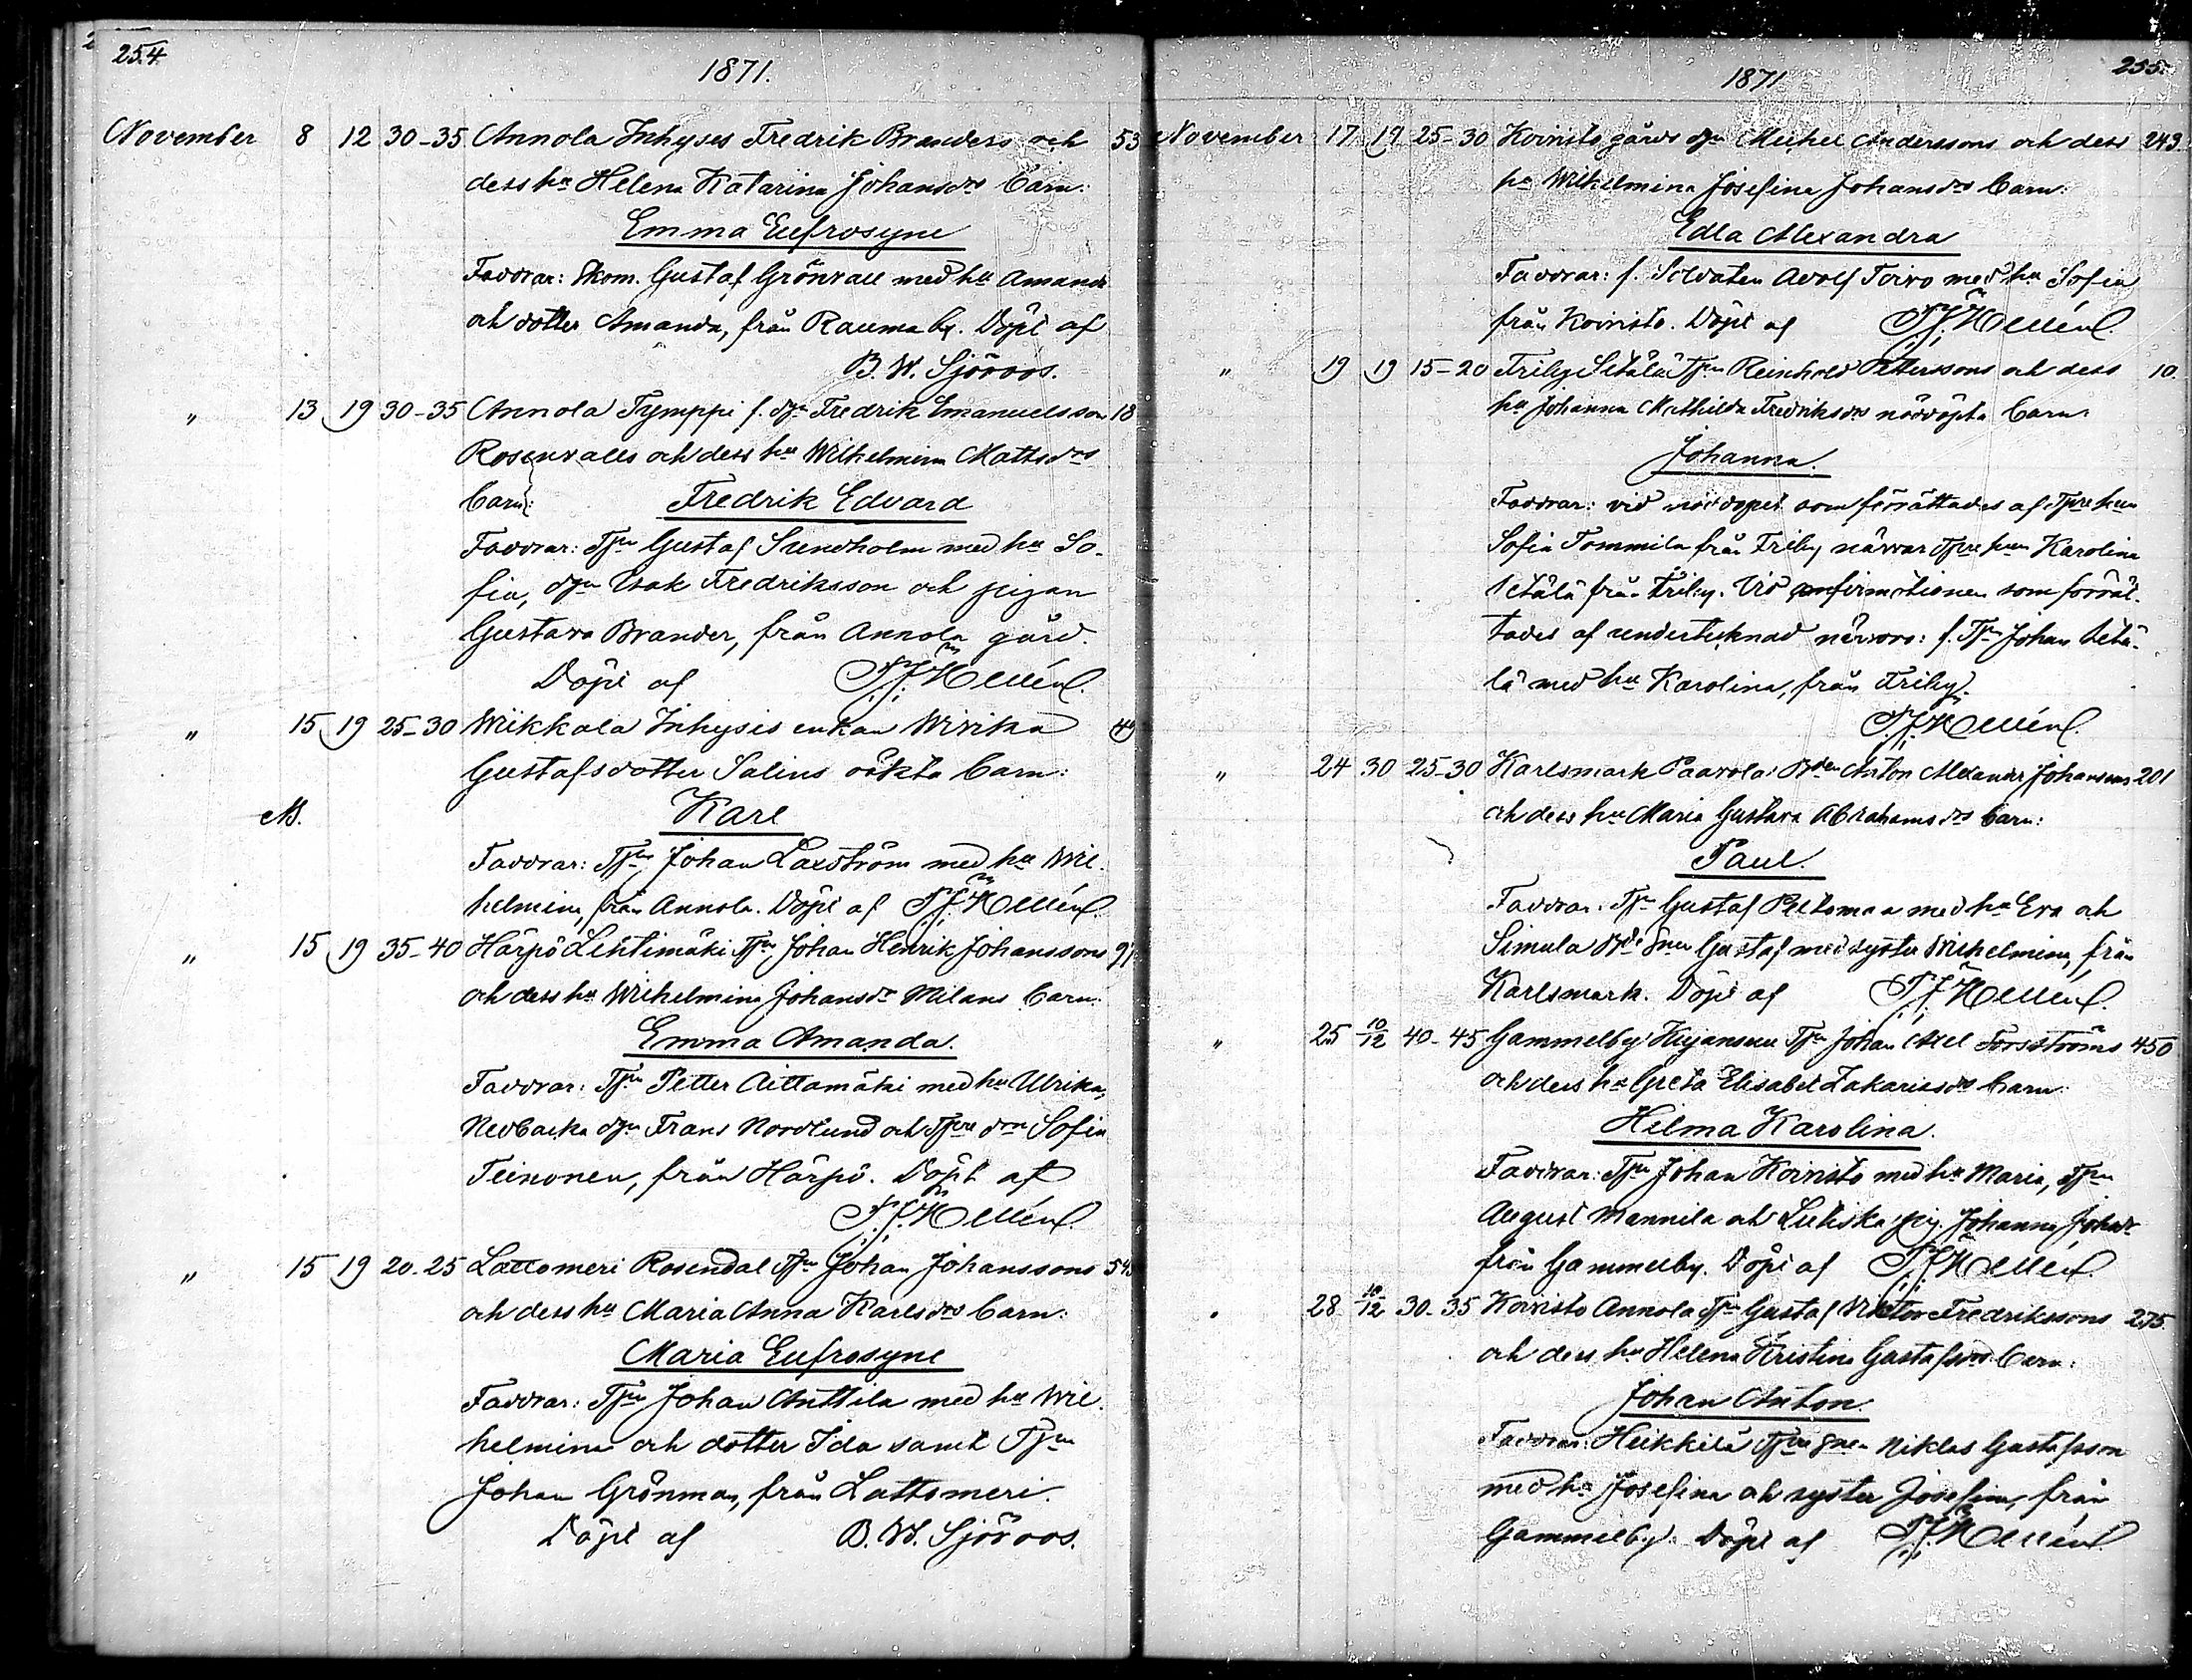 254
1871.
November 8 12 30-35 Annola Inhyses Fredrik Branders och 53
dess hu Helena Katarina Johansdrs barn:
Emma Eufrosyne
Faddrar: Skom. Gustaf Grönvall med hu Amanda
och dotter Amanda, från Rauma by. Döpt af
B. W. Sjöroos.
" 13 19 30-35 Annola Tymppi f. dgn Fredrik Emanuelsson 18
Rosenvalls och dess hu Wilhelmina Mattsdrs
barn: Fredrik Edvard
Faddrar: Tjn Gustaf Sundholm med hu So-
fia, dgn Isak Fredriksson och pigan
Gustava Brander, från Annola gård.
Döpt af J. J. Hellén.
" 15 19 25-30 Wiikkala Inhysis enkan Wivika 49
Gustafsdotter Salins oäkta barn:
Karl
Faddrar: Tjn Johan Laxström med hu Wil-
helmina, från Annola. Döpt af J. J. Hellén.
" 15 19 35-40 Härpö Lehtimäki Tjn Johan Henrik Johanssons 97
och dess hu Wilhelmina Johansdr Milans barn:
Emma Amanda.
Faddrar: Tjn Petter Aittamäki med hu Ulrika,
Nedbacka dgn Frans Nordlund och Tjre drn Sofia
Teinonen, från Härpö. Döpt af
J. J. Hellén
" 15 19 20-25 Lattomeri Rosendal Tjn Johan Johanssons 543
och dess hu Maria Anna Karlsdrs barn:
Maria Eufrosyne
Faddrar: Tjn Johan Anttila med hu Wil-
helmina och dotter Ida samt Tjn
Johan Grönman, från Lattomeri.
Döpt af B. W. Sjöroos.
255.
1871
November 17 19 25-30 Koivisto gårds dgn Michel Anderssons och dess 243.
hu Wilhelmina Josefina Johansdrs barn:
Edla Alexandra
Faddrar: f. Soldaten Adolf Toivo med hu Sofia
från Koivisto. Döpt af J. J. Hellén.
" 19 19 15-20 Friby Setälä Tjn Reinhold Petterssons och dess 10.
hu Johanna Mathilda Fredriksdrs nöddöpta barn:
Johanna.
Faddrar: vid nöddopet som förrättades af Tjre hun
Sofia Tommila från Friby närvar Tjre hun Karolina
Setälä från Friby. Vid confirmationen som förrät-
tades af undertecknad närvoro: f. Tjn Johan Setä-
lä med hu Karolina, från Friby.
J. J. Hellén.
" 24 30 25-30 Karlsmark Paavola Bden Anton Alexander Johanssons 201
och dess hu Maria Gustava Abrahamsdrs barn:
Paul.
Faddrar: Tjn Gustaf Peltomaa med hu Eva och
Simula Bde snn Gustaf med syster Wilhelmina, från
Karlsmark. Döpt af J. J. Hellén.
" 25 10/12 40-45 Gammelby Tjn Johan Axel Forsströms 450
och dess hu Greta Elisabet Zakarisdrs barn:
Hilma Karolina.
Faddrar: Tjn Johan Koivisto med hu Maria, Tjn
August Mannila och pig. Johanna Johsdr
från Gammelby. Döpt af J. J. Hellén.
28 10/12 30-35 Koivisto Annola Tjn Gustaf Viktor Fredrikssons 275.
och dess hu Helena Kristina Gustafsdrs barn:
Johan Anton.
Faddrar: Heikkilä Tjre snn Niklas Gustafsson
med hu Josefina och syster Josefina, från
Gammelby. Döpt af J. J. Hellén.